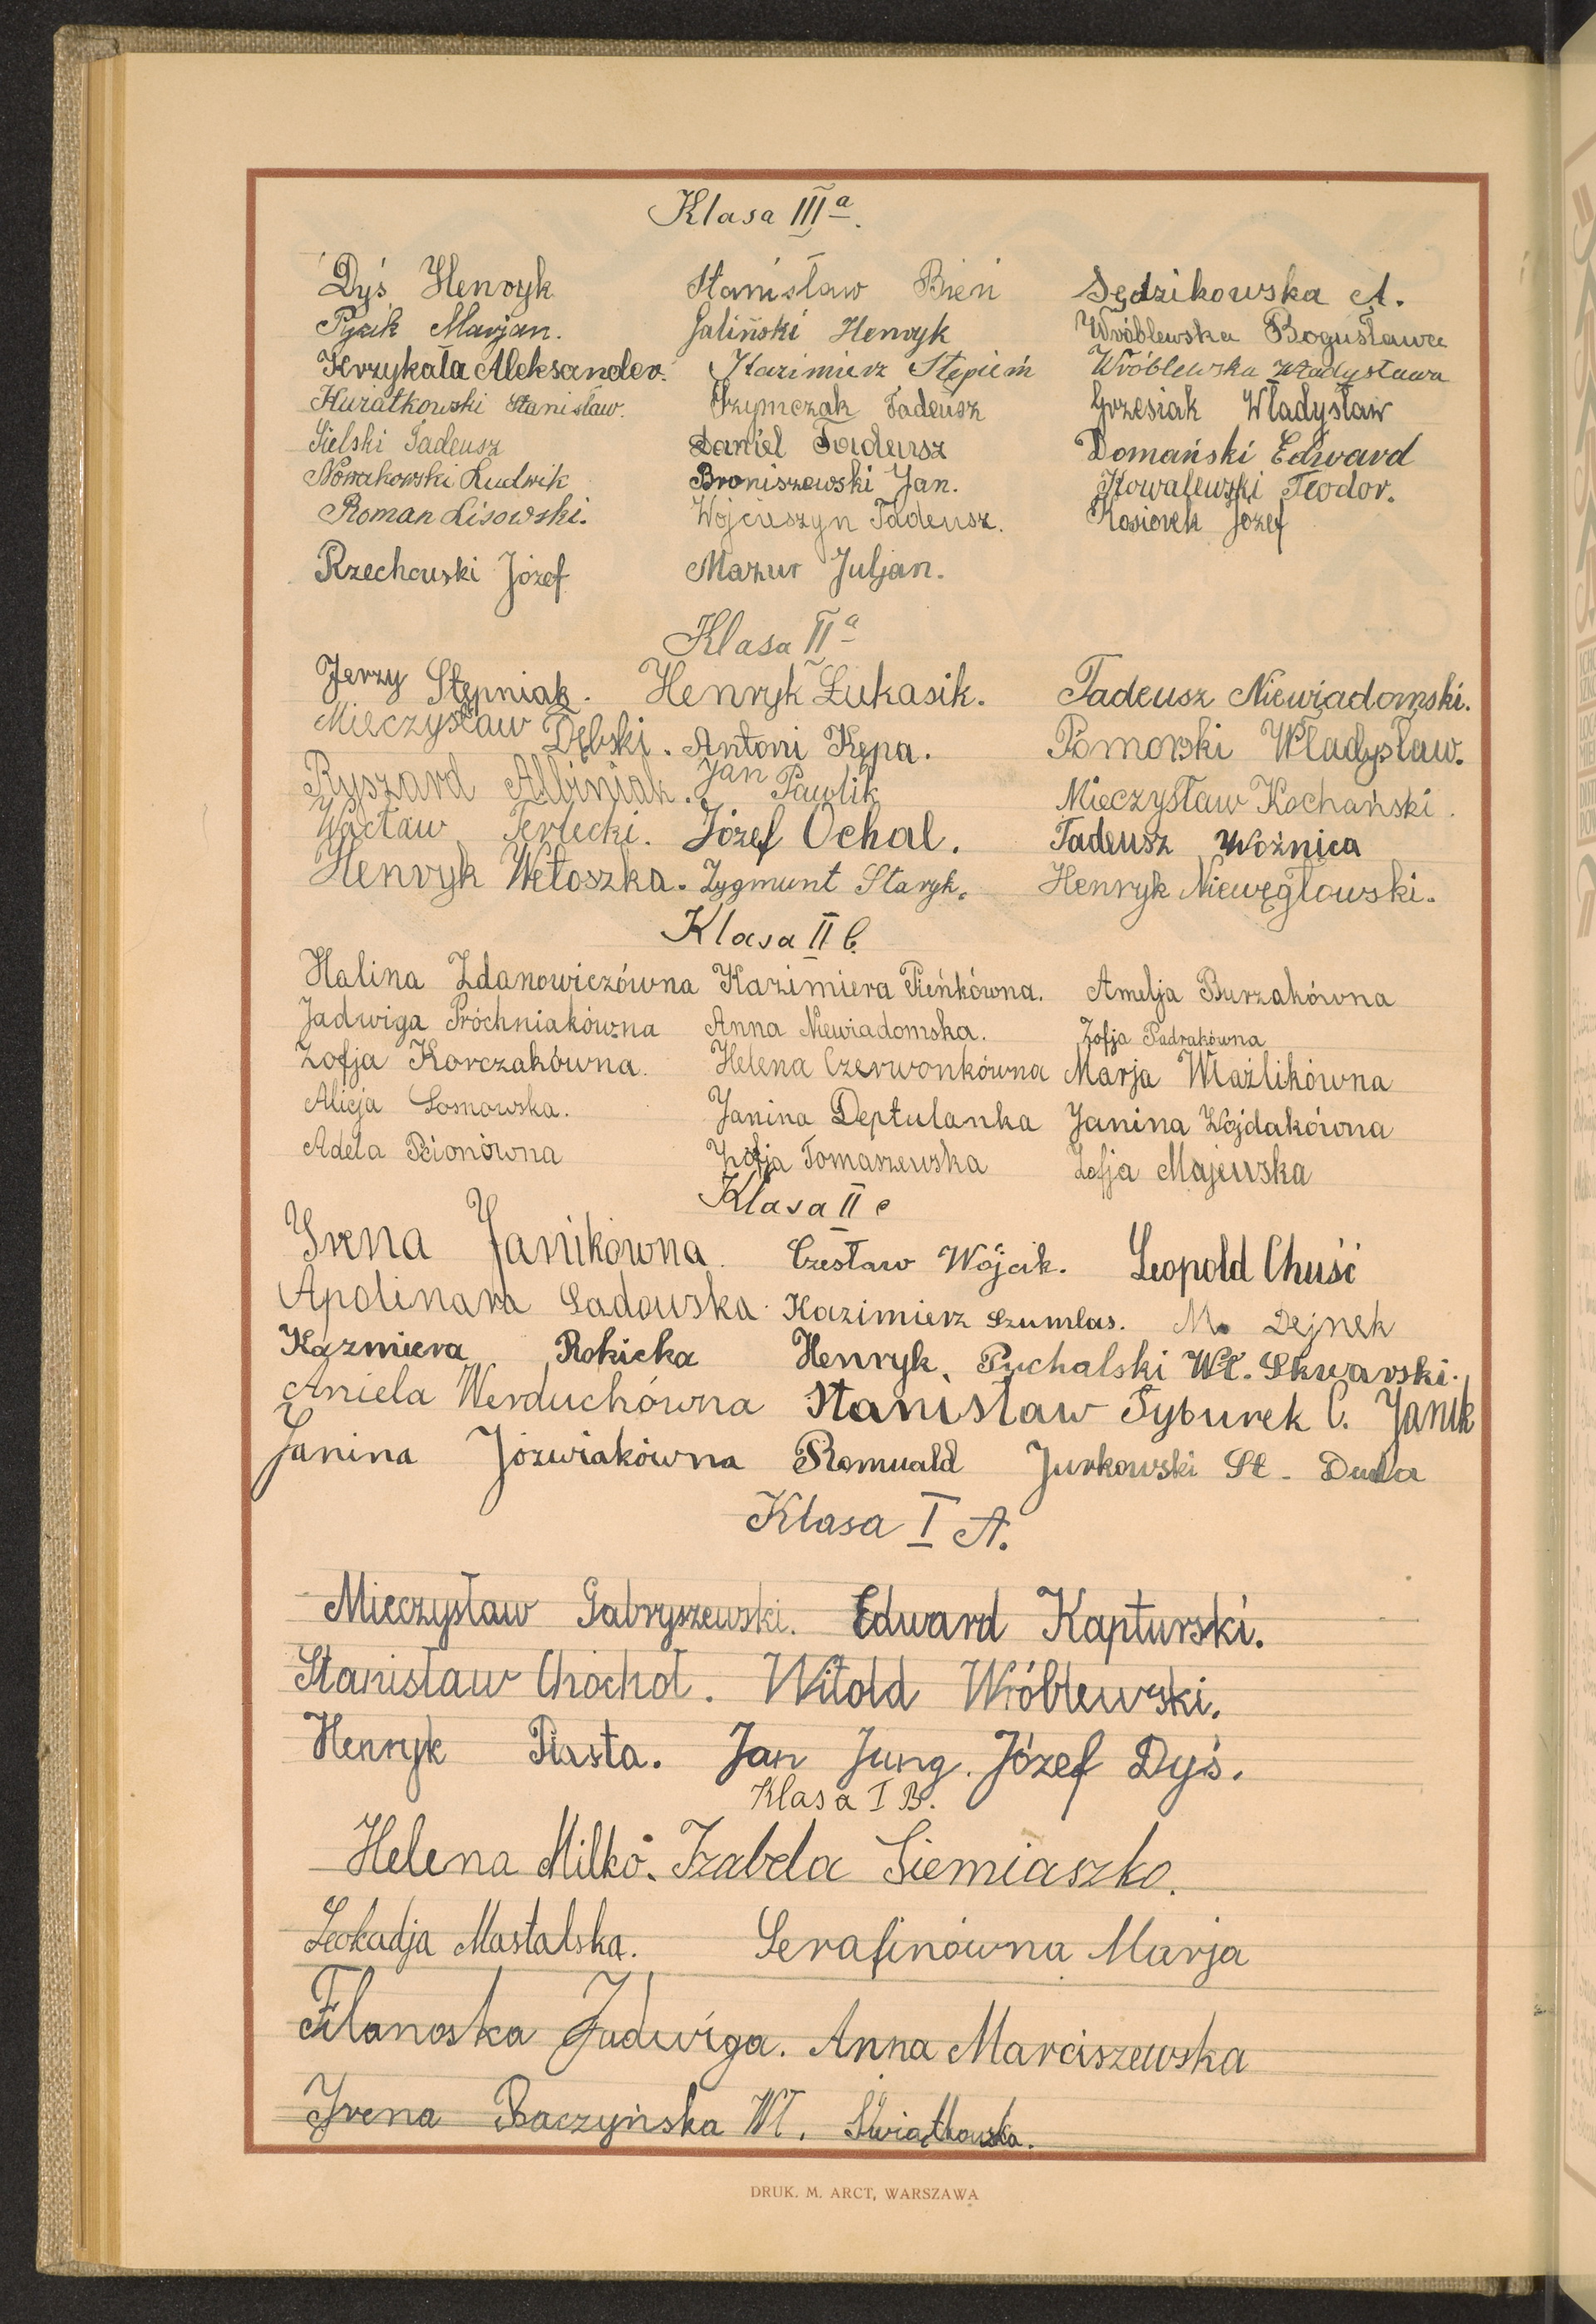 Klasa III a.
Dyś Henryk Stanisław Bień Sędzikowska A.
Pyzik Marjan. Galiński Henryk Wróblewska Bogusława
Krzykała Aleksander. Kazimierz Stępień Wróblewska Władysława
Kwiatkowski Stanisław. Szymczak Tadeusz Grzesiak Władysław
Sielski Tadeusz Daniel Tadeusz Domański Edward
Nowakowski Ludwik Broniszewski Jan. Kowalewski Teodor.
Roman Lisowski. Wojcieszyn Tadeusz. Kosiorek Józef
Rzechowski Józef Mazur Juljan.
Klasa II a
Jerzy Stępniak. Henryk Łukasik. Tadeusz Niewiadomski.
Mieczysław Dębski. Antoni Kępa. Pomorski Władysław.
Ryszard Albiniak. Jan Pawlik Mieczysław Kochański.
Wacław Terlecki. Józef Ochal. Tadeusz Woźnica
Henryk Wetoszka. Zygmunt Staryk. Henryk Niewęgłowski.
Klasa II b
Halina Zdanowiczówna Kazimiera Pieńkówna. Amelja Burzakówna
Jadwiga Próchniakówna Anna Niewiadomska. Zofja Padrakówna
Zofja Korczakówna. Helena Czerwonkówna Marja Wlaźlikówna
Alicja Sosnowska. Janina Deptulanka Janina Wojdakówna
Adela Pcionówna Zofja Tomaszewska Zofja Majewska
Klasa II c
Irena Janikówna. Czesław Wójcik. Leopold Chuść
Apolinara Sadowska. Kazimierz Szumlas. M. Dejnek
Kazmiera Rokicka Henryk Puchalski Wł. Skwarski.
Aniela Werduchówna Stanisław Syburek C. Janik
Janina Józwiakówna Romuald Jurkowski St. Duda
Klasa I A.
Mieczysław Gabryszewski. Edward Kapturski.
Stanisław Chochoł. Witold Wróblewski.
Henryk Piasta. Jan Jung. Józef Dyś.
Klasa I B.
Helena Milko. Izabela Siemiaszko.
Leokadja Mastalska. Serafinówna Marja
Filanoska Jadwiga. Anna Marciszewska
Irena Baczyńska Wł. Świątkowska.
DRUK. M. ARCT, WARSZAWA